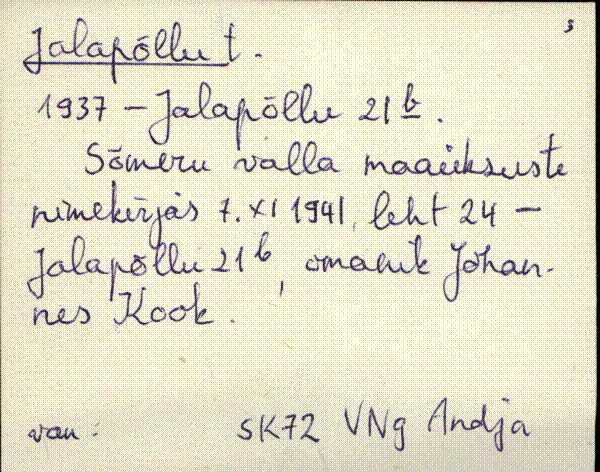 Jalapõllu t.
1937 – Jalapõllu 21 b.
Sõmeru valla maaüksuste
nimekirjas 7. XI 1941, leht 24 –
Jalapõllu 21 b, omanik Johan-
nes Kook.
van: SK72 VNg Andja